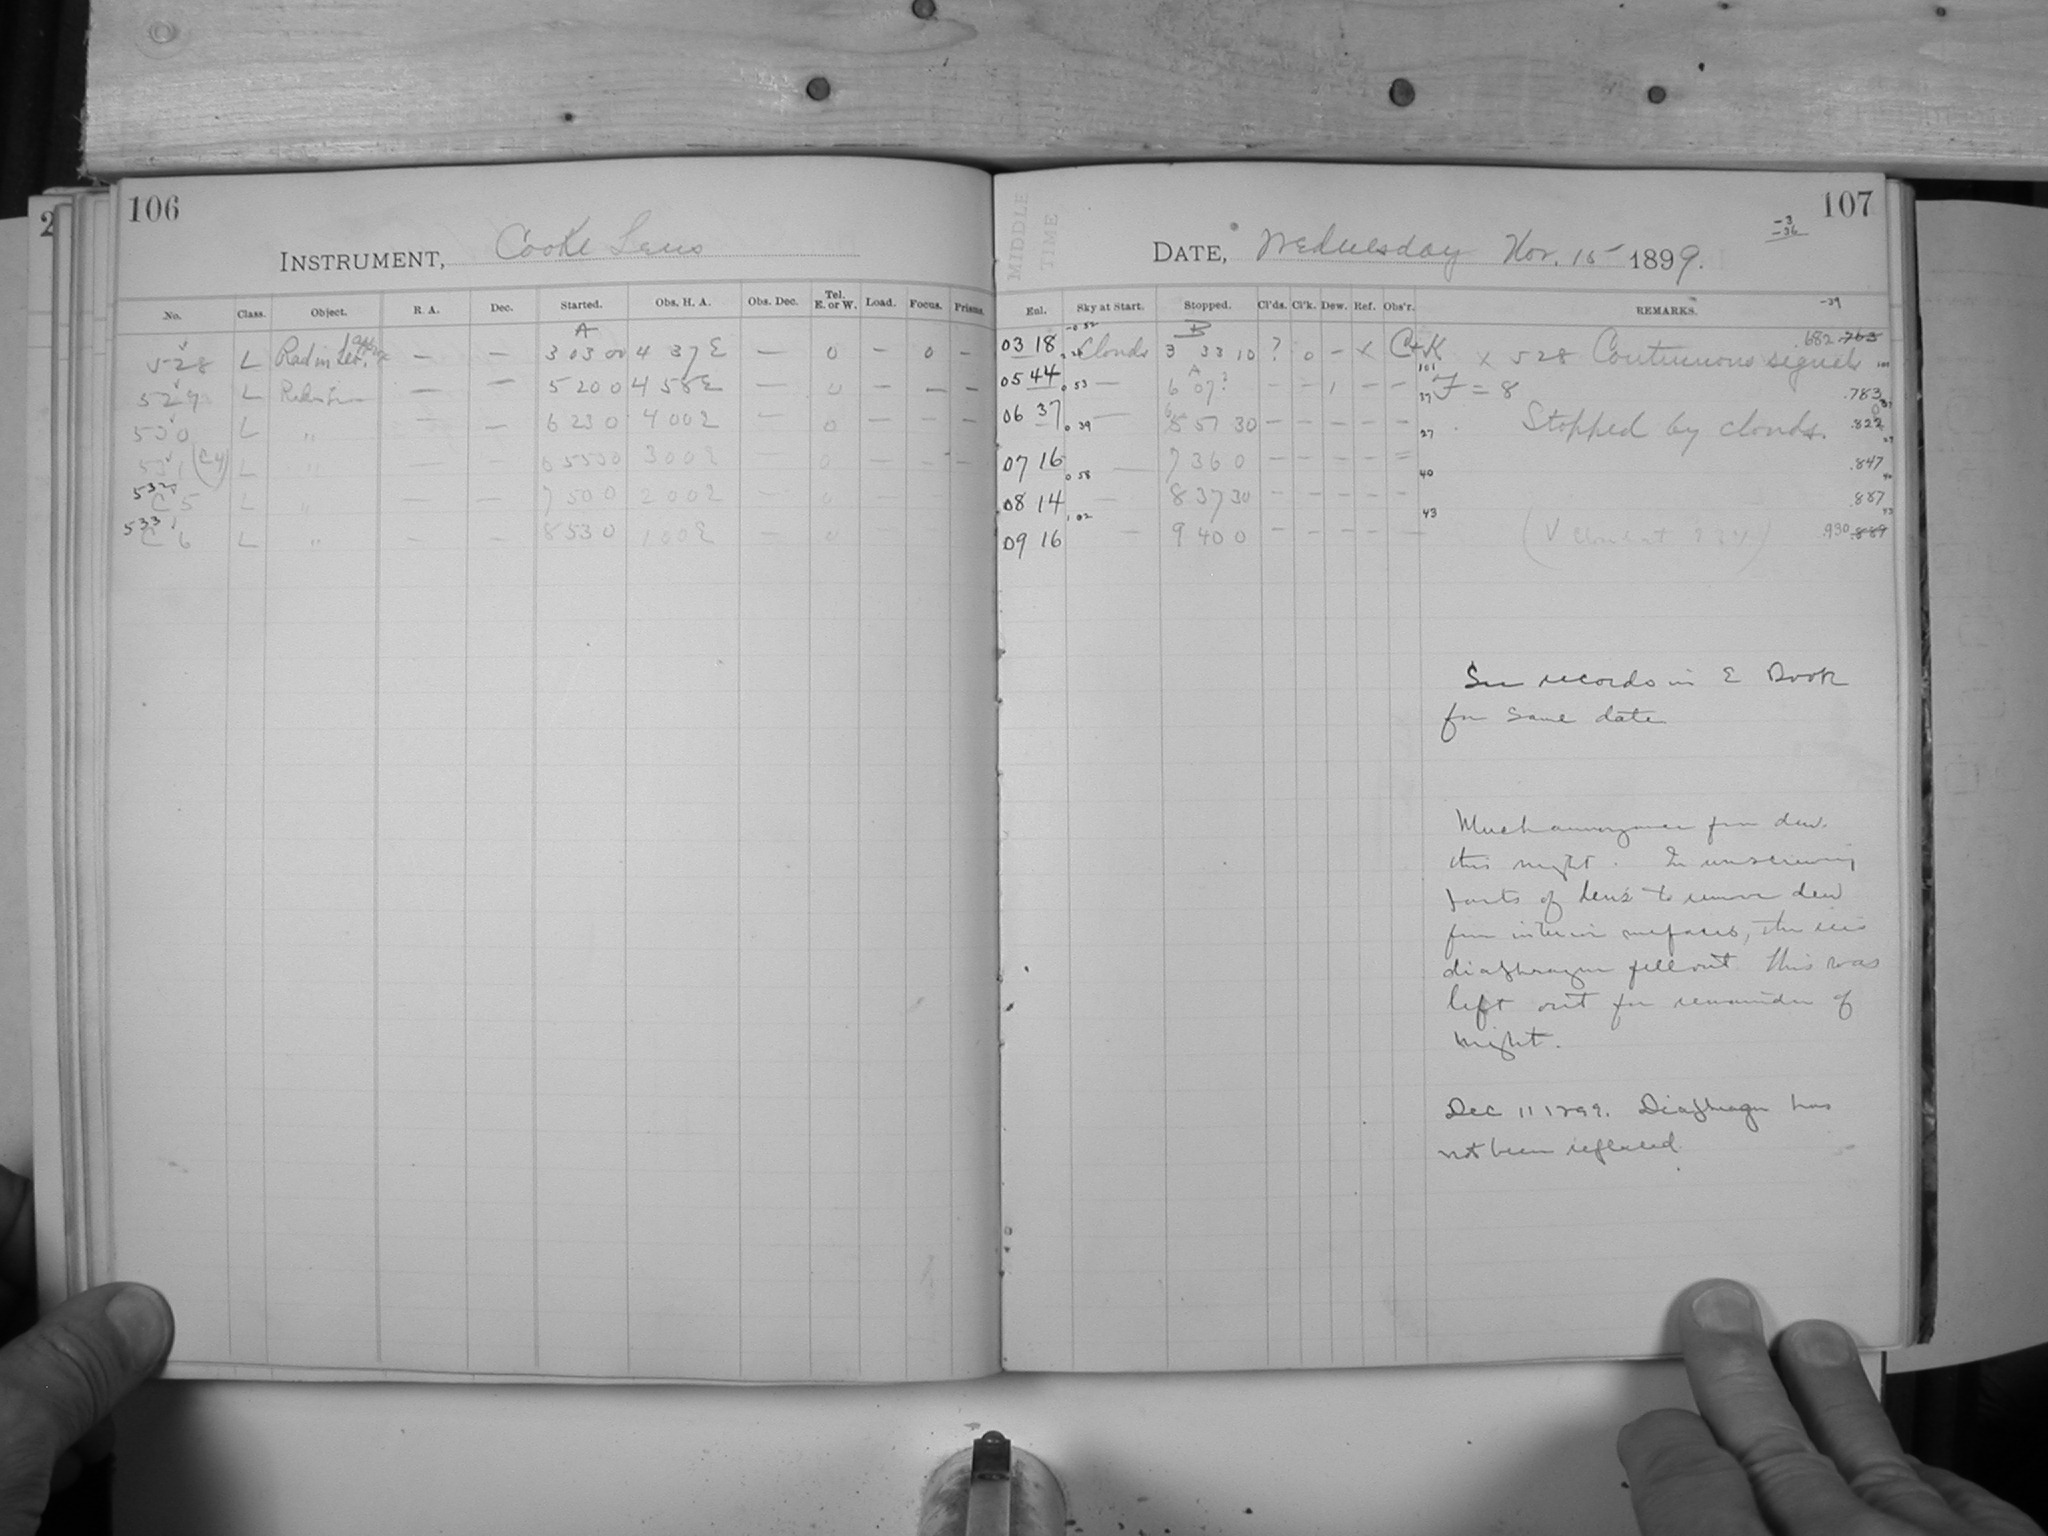 106
INSTRUMENT, Cooke Lens
No. Class. Object. R. A. Dec. Started. Obs. H. A. Obs. Dec. Tel. E. or W. Load. Focus. Prisms.
A
528 L Rad in Leo, — — 3 03 00 4 37 E — 0 — 0 —
529 L — — 5 20 0 4 58 E — 0 — — —
530 L " — — 6 23 0 4 00 E — 0 — — —
531 (C4) L " — — 6 55 30 3 00 E — 0 — — —
532
C 5 L " — — 7 50 0 2 00 E — 0 — — —
533
C 6 L " — — 8 53 0 1 00 E — 0 — — —
2
107
MIDDLE TIME
DATE, Wednesday Nov. 15 1899.
-3
-36
Enl. Sky at Start. Stopped. Cl'ds. Cl'k. Dew. Ref. Obs'r. REMARKS. -39
B
03 18 Clouds 3 33 10 ? 0 — x C+K x 528 Continuous signals .682 .763
A
05 44 0 53 — 6 07? — — 1 — — F = 8 .783
06 37 0 39 — 6 57 30 — — — — — Stopped by clouds. .822
07 16 0 58 — 7 36 0 — — — — = .847
08 14 1 02 — 8 37 30 — — — — — .887
09 16 — 9 40 0 — — — — — .930 .889
101
37
27
40
43
See records in E Book
for same date
Much annoyance from dew
this night. In unscrewing
parts of lens to remove dew
from interior surfaces, the iris
diaphragm fell out. This was
left out for remainder of
night.
Dec 11 1899. Diaphragm has
not been replaced